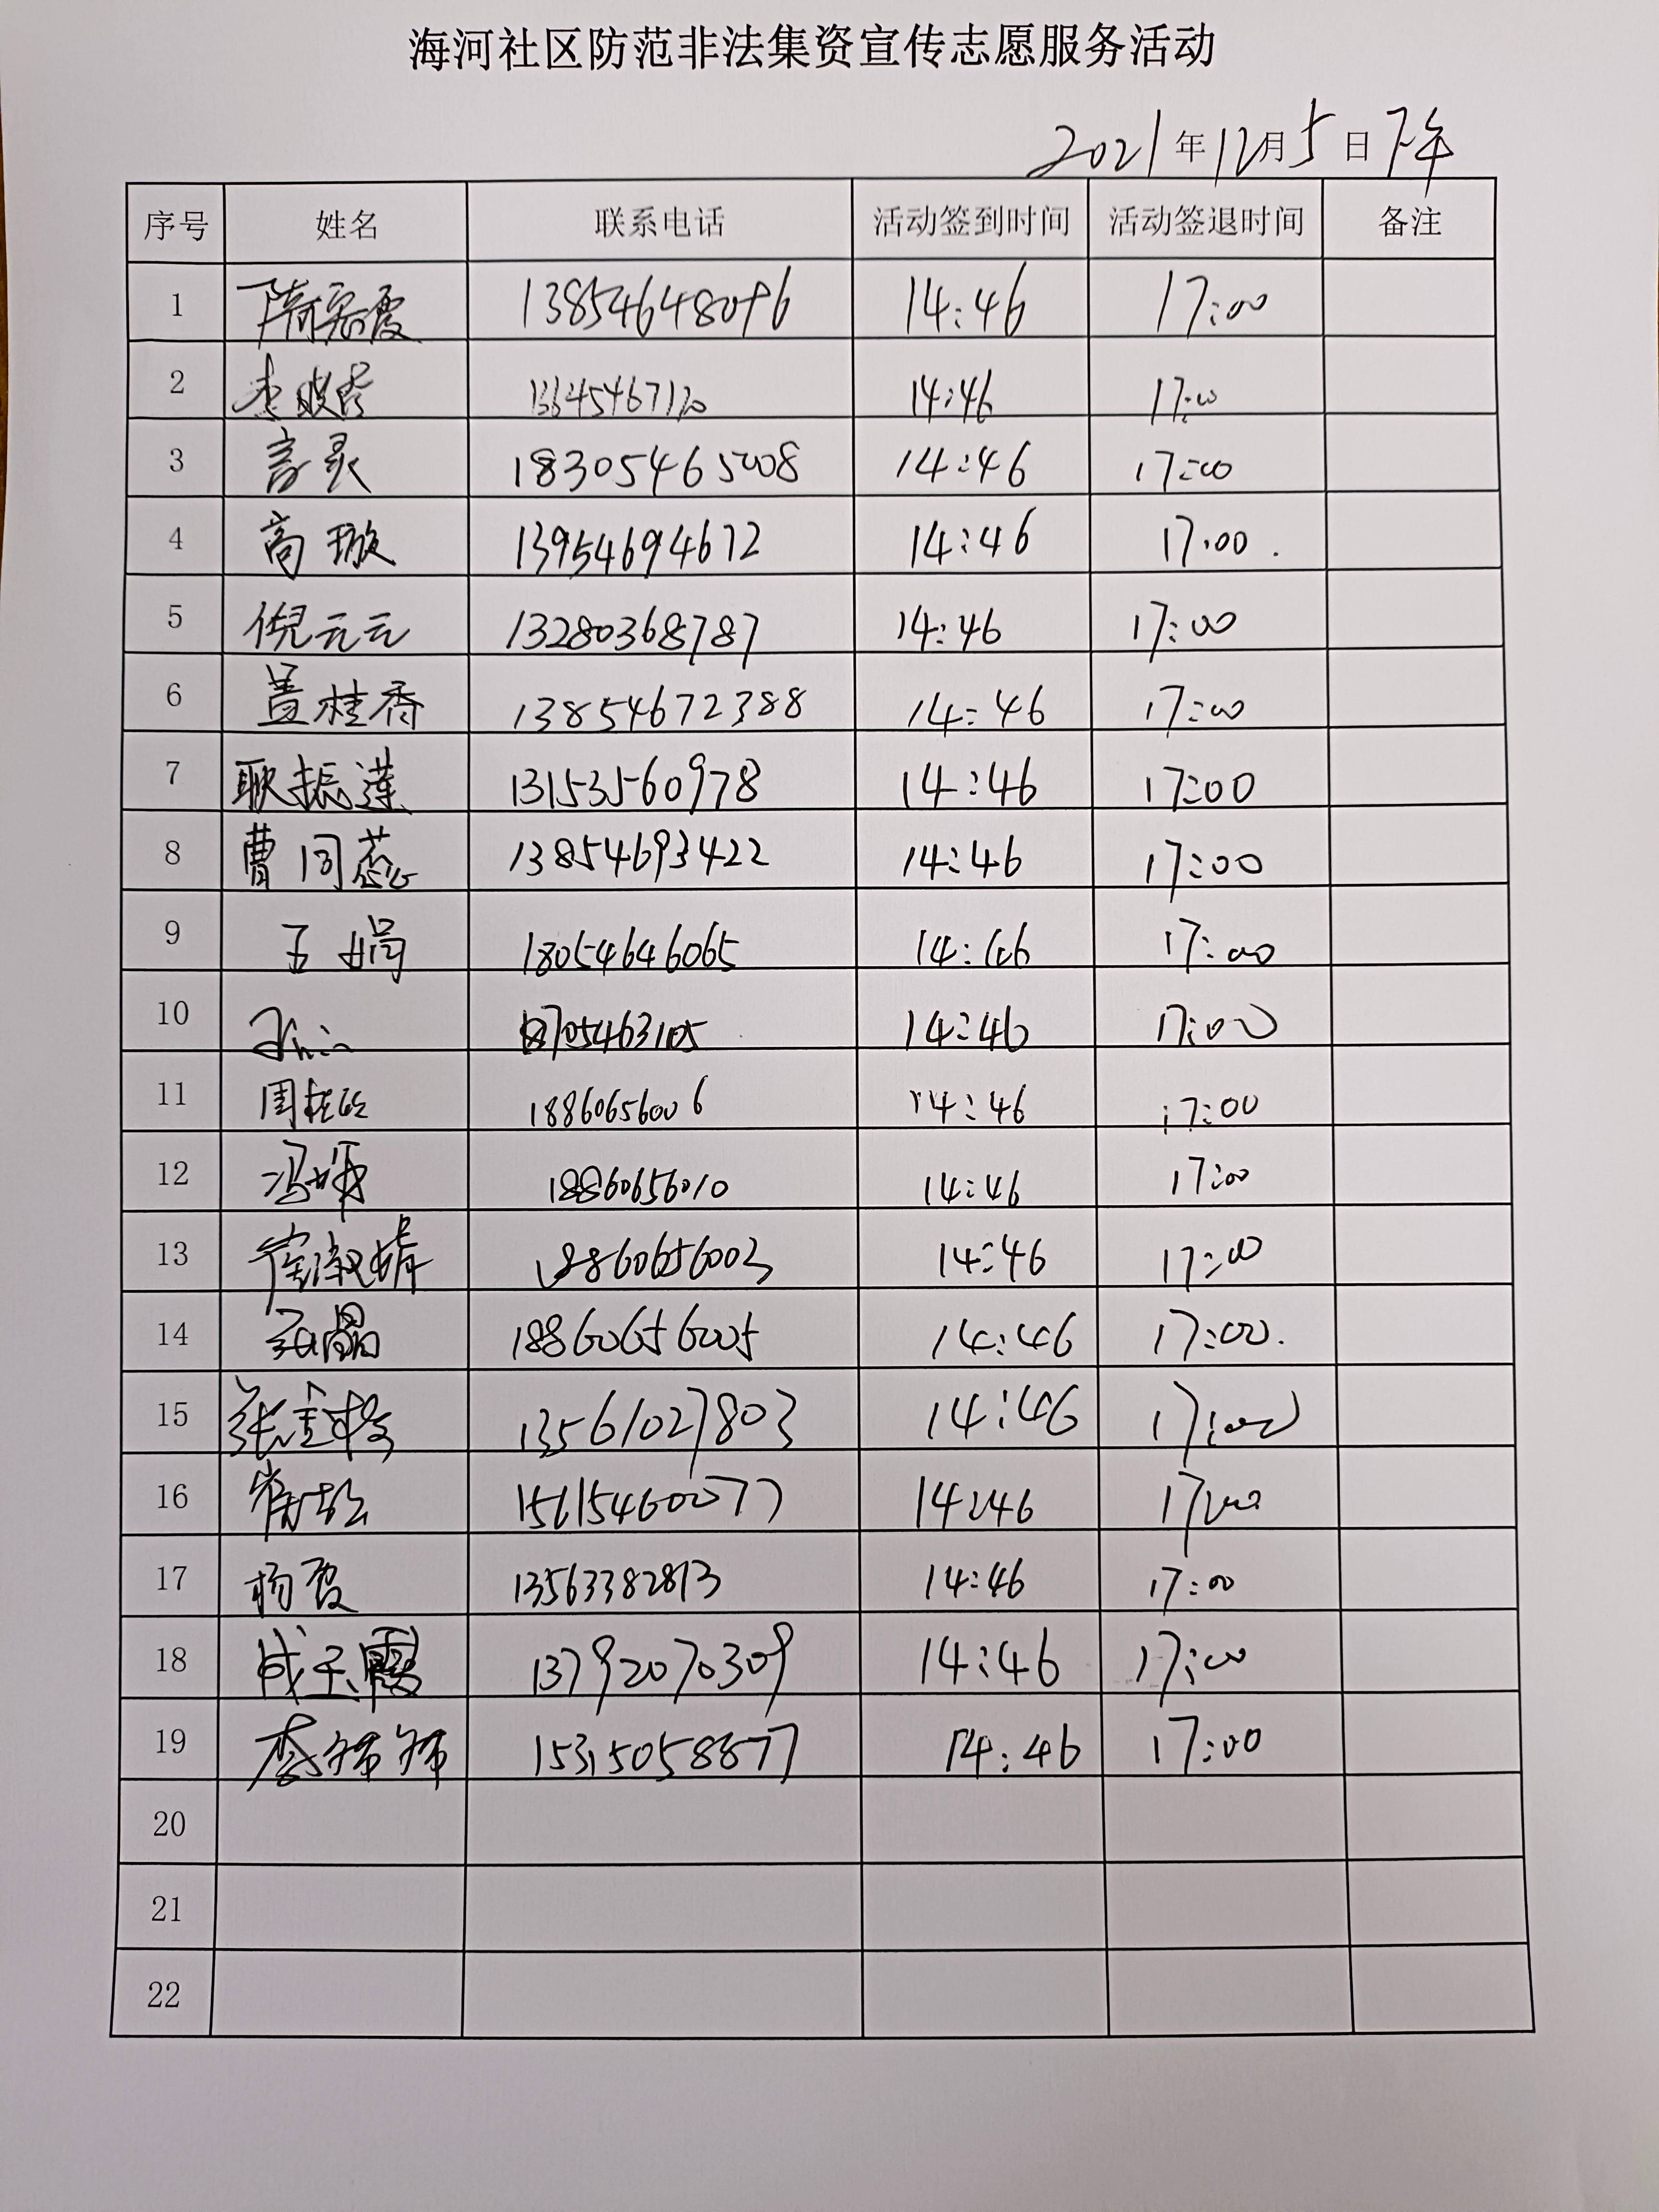 海河社区防范非法集资宣传志愿服务活动
2021年12月5日下午
序号 姓名 联系电话 活动签到时间 活动签退时间 备注
1 隋霞 13854648096 14:46 17:00
2 李 14:46 17:00
3 18305465008 14:46 17:00
4 高璇 13954694672 14:46 17:00.
5 倪元元 13280368787 14:46 17:00
6 盖桂香 13854672388 14:46 17:00
7 耿振莲 13153560978 14:46 17:00
8 曹同蕊 13854693422 14:46 17:00
9 王娟 18054646065 14:46 17:00
10 18705463105 14:46 17:00
11 周 18860656006 14:46 17:00
12 冯 18860656010 14:46 17:00
13 崔淑婧 18860656003 14:46 17:00
14 张晶 18860656005 14:46 17:00.
15 张 13561027803 14:46 17:00
16 崔 15615460077 14:46 17:00
17 杨霞 13563382813 14:46 17:00
18 成玉霞 13792070309 14:46 17:00
19 李 15315058877 14:46 17:00
20
21
22